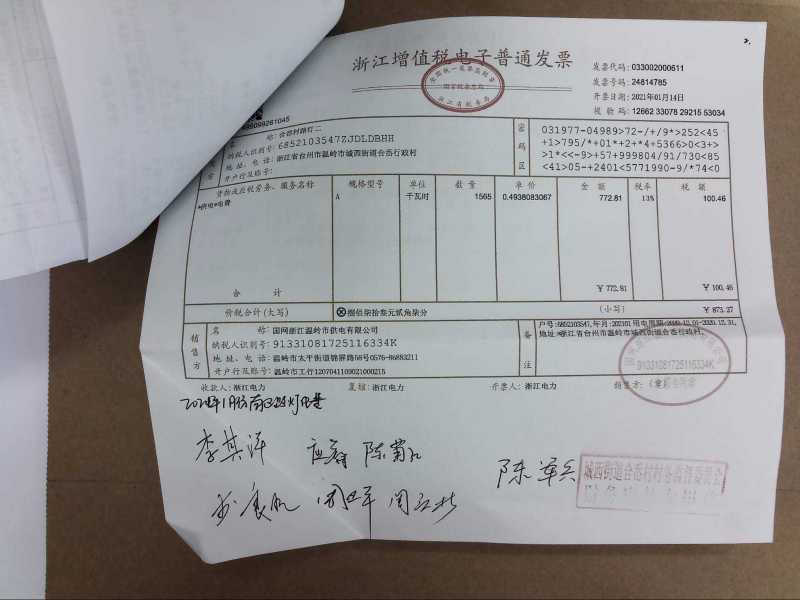 浙江增值税电子普通发票
全国统一发票监制章
国家税务总局
浙江省税务局
发票代码: 033002000611
发票号码: 24814785
开票日期: 2021年01月14日
校验码: 12662 33078 29215 53034
499099261045
名称: 合岙村路灯二
纳税人识别号: 6852103547ZJDLDBHH
地址、电话: 浙江省台州市温岭市城西街道合岙行政村
开户行及账号:
密码区
031977-04989>72-/+/9*>252<45
+1>795/*+01*+2+*4+5366>0<3+>
>1*<<-9>+57+999804/91/730<85
<41>05-+2401<5771990-9/*74<0
货物或应税劳务、服务名称 规格型号 单位 数量 单价 金额 税率 税额
*供电*电费 A 千瓦时 1565 0.4938083067 772.81 13% 100.46
合计 ￥772.81 ￥100.46
价税合计(大写) ⊗捌佰柒拾叁元贰角柒分 (小写) ￥873.27
销售方
名称: 国网浙江温岭市供电有限公司
纳税人识别号: 91331081725116334K
地址、电话: 温岭市太平街道锦屏路58号0576-86883211
开户行及账号: 温岭市工行1207041109021000215
备注
户号:6852103547,年月:202101,用电周期:2020.12.01-2020.12.31,
地址:浙江省台州市温岭市城西街道合岙行政村。
91331081725116334K
收款人: 浙江电力 复核: 浙江电力 开票人: 浙江电力 销售方: (章)
李其洋 陈菊
陈军兵
城西街道合岙村村务监督委员会